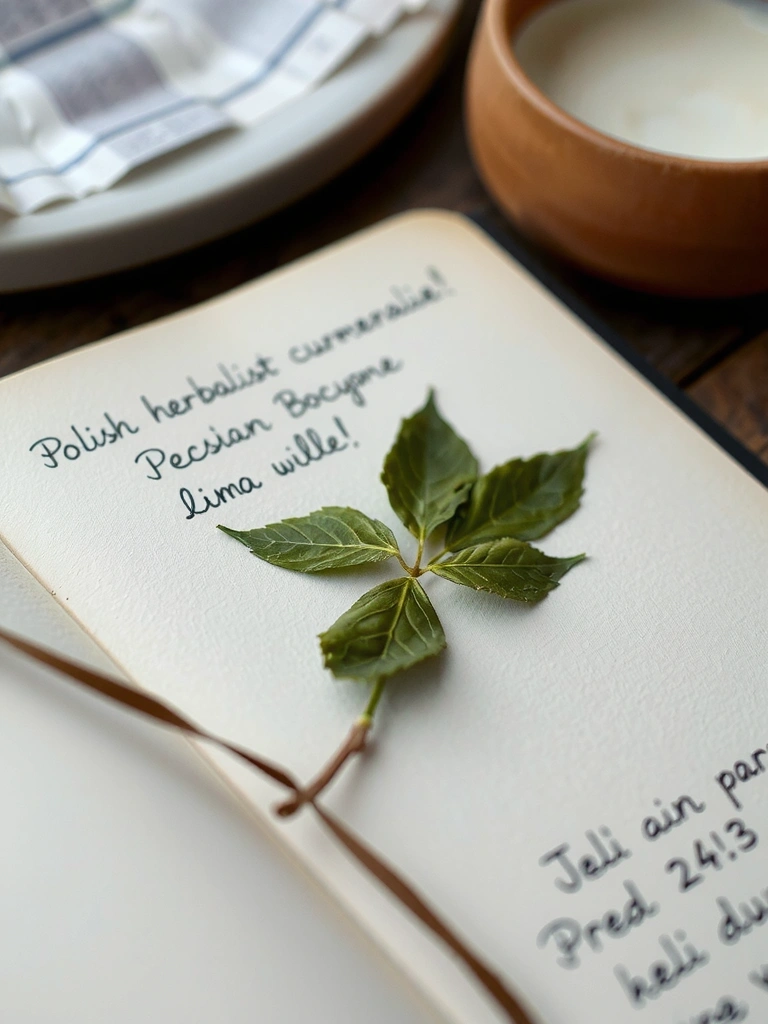 Polish herbalist curmenalie!
Pecsian Bocyome
lima wille!
Jeli ain par
Pred 24!3
keli du